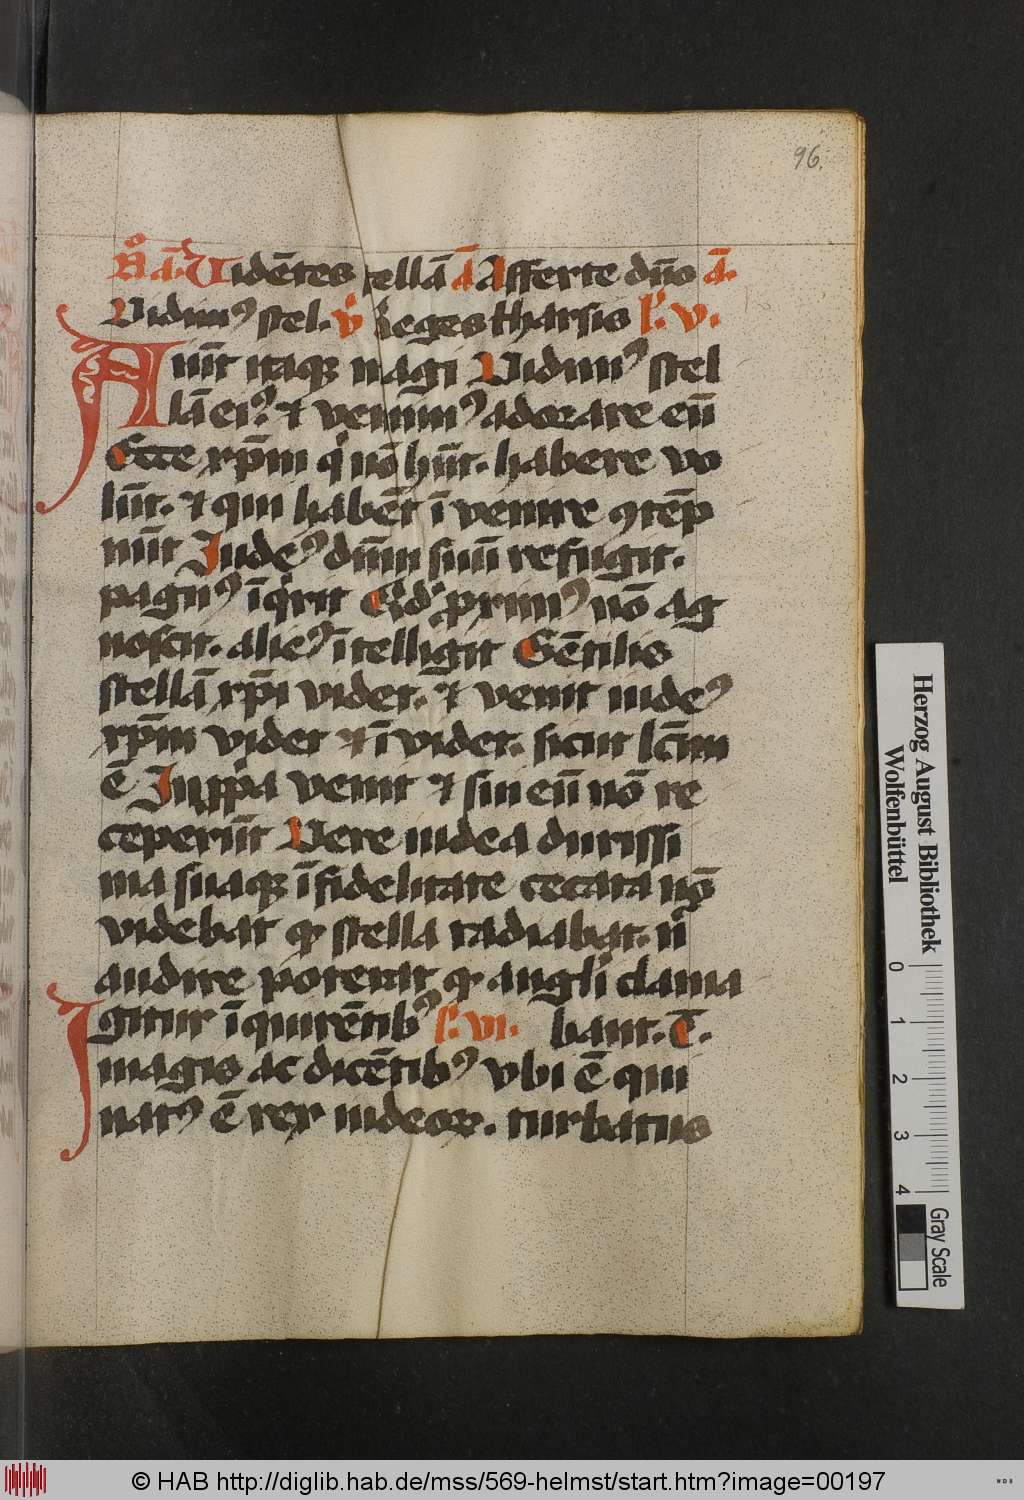 96.
Noͣ. ā. Vidētes stellā ā Afferte dn̄o ā.
Vidimꝰ stel. v̊ Reges tharsis l̕. v.
Aiūt itaqꝫ magi Vidimꝰ stel
lā eiꝰ. ⁊ venimꝰ adorare eū
Ecce xp̄m qͥ nō hūt. habere vo
lūt. ⁊ qui habēt ī ventre ꝯtēp
nūt Iudeꝰ dm̄ suū refugit.
paganꝰ īqͥrit Qd̕ primꝰ nō ag
noscit. alieꝰ ītelligit Gētilis
stellā xp̄i videt. ⁊ venit iudeꝰ
xp̄m videt ⁊ īvidet. sicut lc̄um
ē In ꝓp̱a venit ⁊ sui eū nō re
ceperūt Vere iudea durissi
ma suaqꝫ īfidelitate cecata nō
videbat qꝫ stella radiabat. n̄
audire poterat qꝫ angli clama
gitur īquirētibꝰ l̕. vi. bant. T̄.
I magis ac dicētibꝰ vbi ē qui
natꝰ ē rex iudeoꝝ. turbatus
Herzog August Bibliothek
Wolfenbüttel
0
1
2
3
4
Gray Scale
© HAB http://diglib.hab.de/mss/569-helmst/start.htm?image=00197